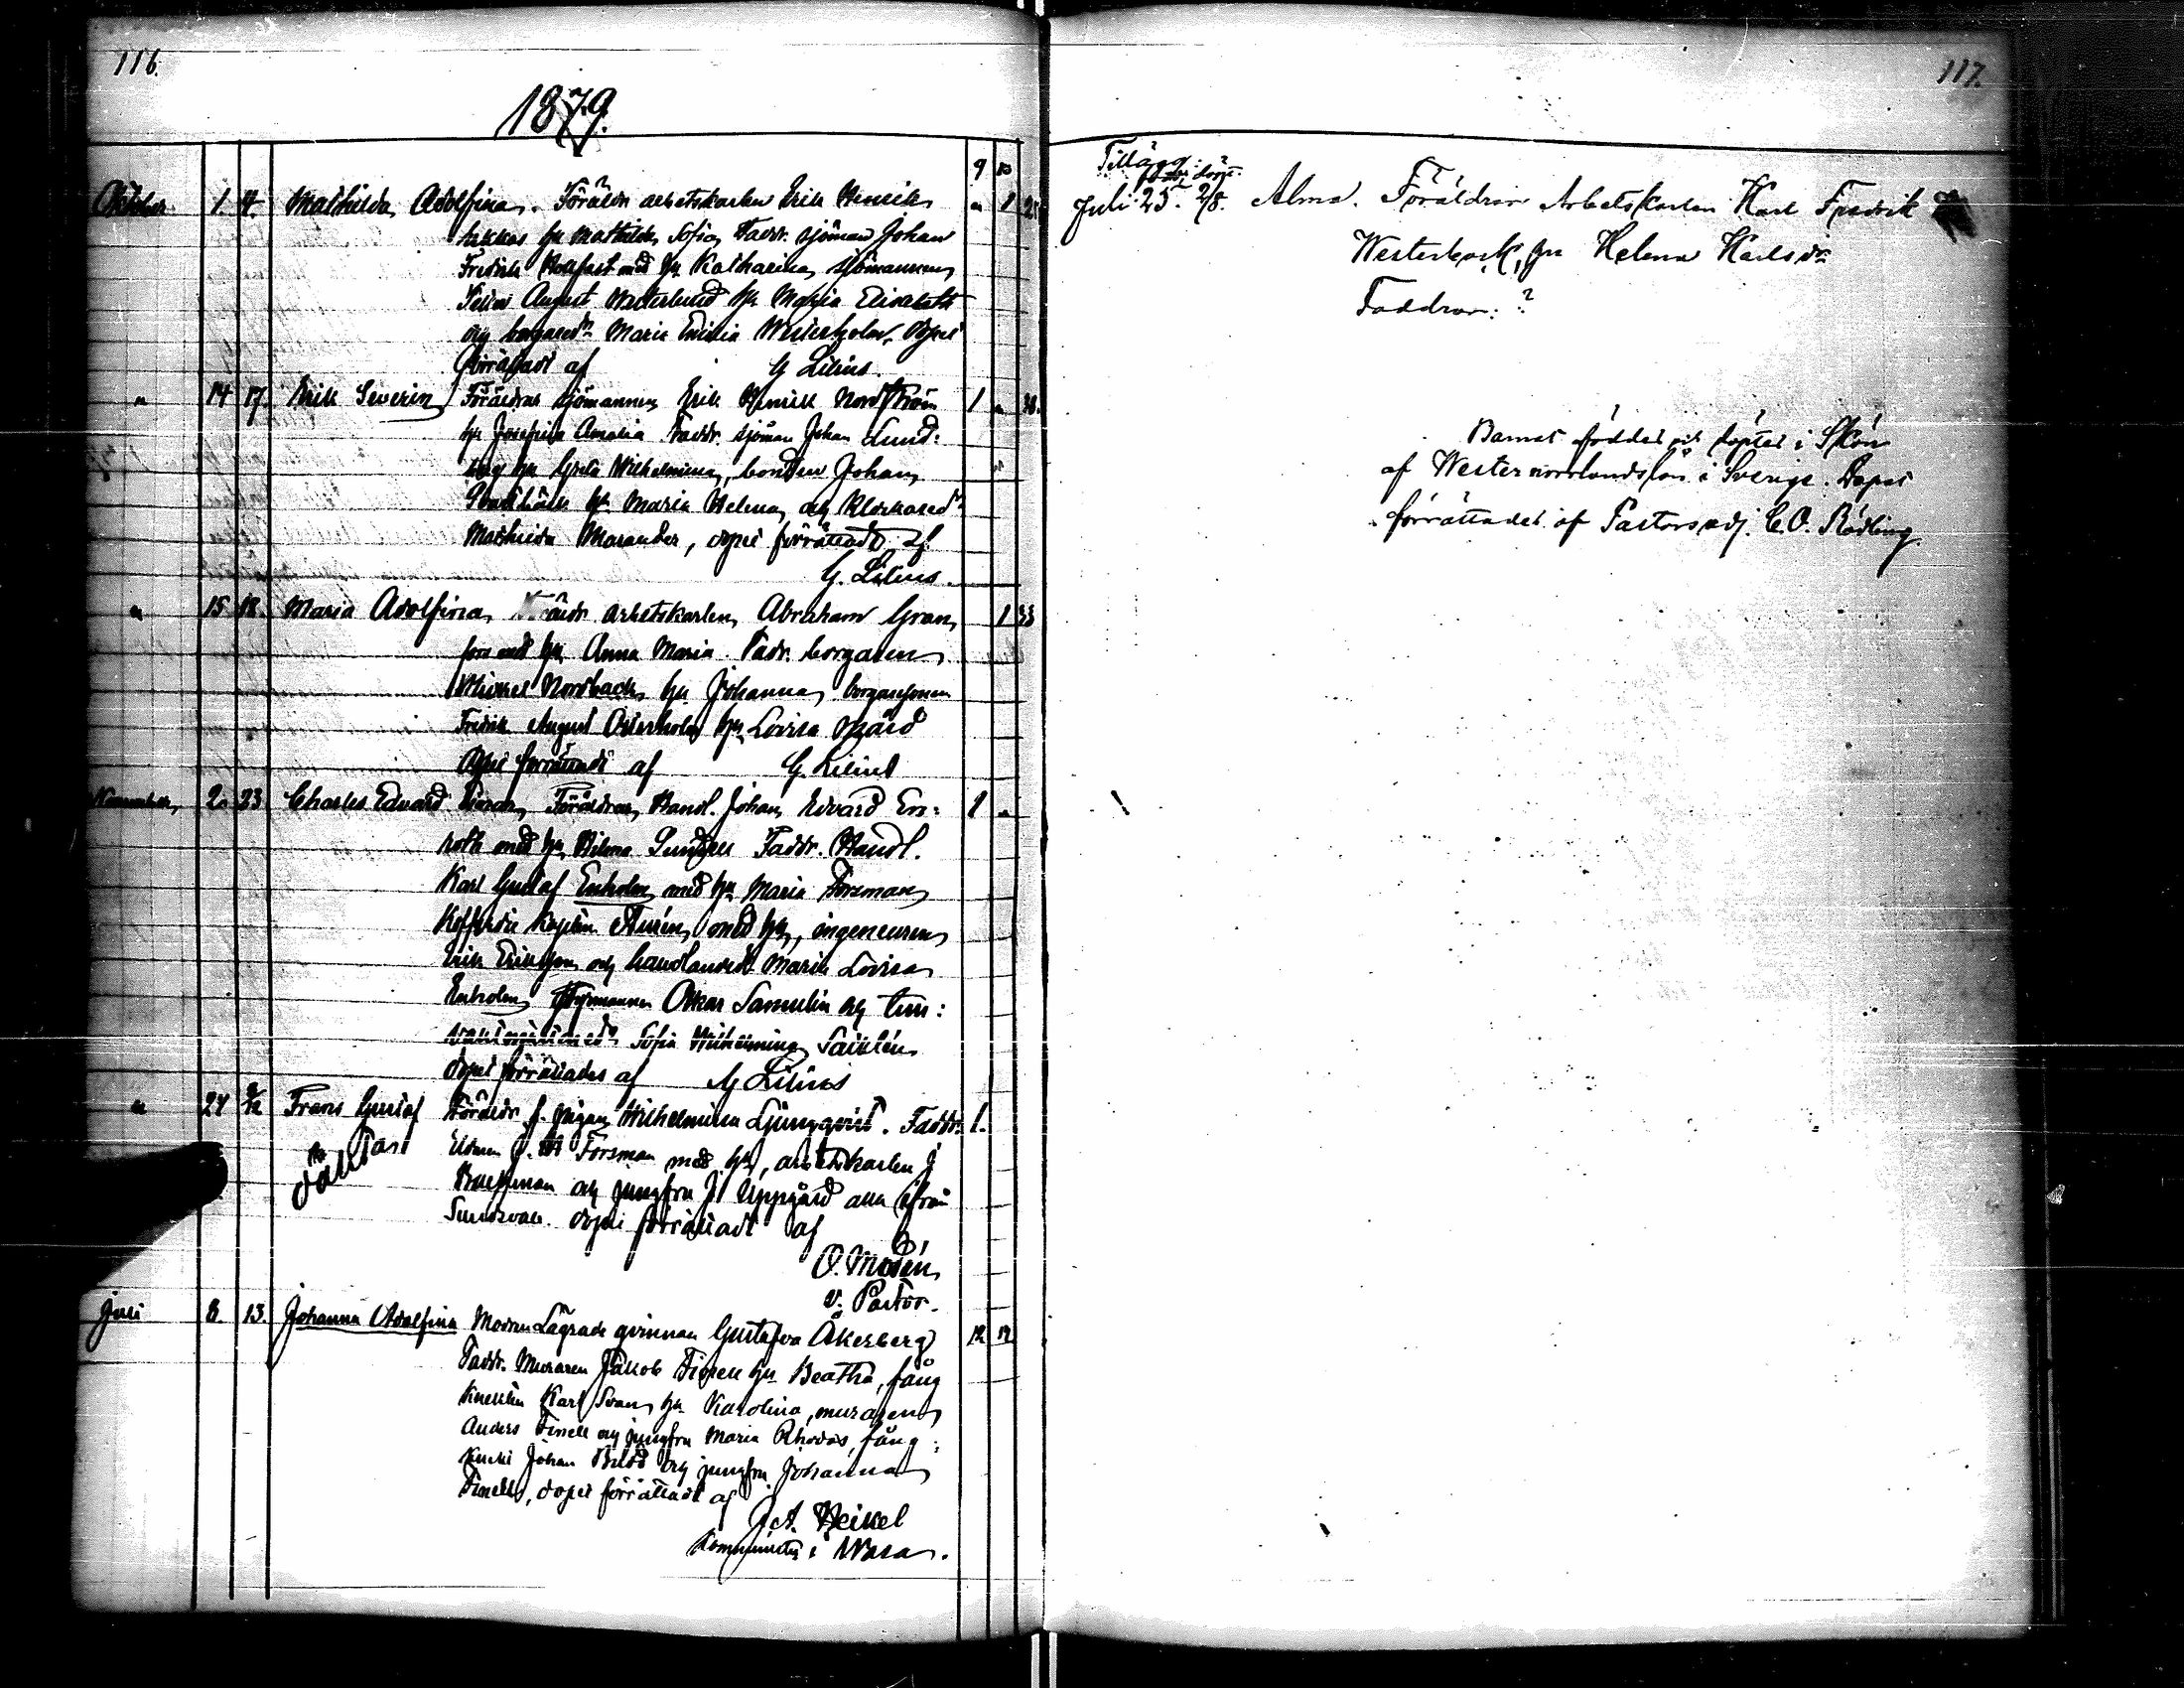 116.
1879.
9 10
Oktober 1. 4. Mathilda Adolfina. Föräldr arbetskarlen Erik Henrik " 1 25
hu Mathilda Sofia, Faddr. sjöman Johan
Fredrik Hollfast med hu Katharina, sjömannen
August Westerlund hu Maria Elisabeth
och borgaredr Maria Emilia Westerholm, dopet
förrättadt af G Lilius.
" 14 17. Erik Severin Föräldrar sjömannen Erik Henrik Nordström 1 " 38.
hu Josefina Amalia Faddr. sjöman Johan Lund:
hu Greta Wilhelmina, bonden Johan
hu Maria Helena, och Klockaredr
Mathilda Marander, dopet förrättadt af
G. Lilius.
" 15 18. Maria Adolfina, Föräldr arbetskarlen Abraham Gran 1 33
med hu Anna Maria. Fadr. borgaren
Mickel Nordback hu Johanna, borgaresonen
Fredrik August Österholm hu Lovisa
dopet förrättadt af G. Lilius
November, 20 23 Charles Edvard Föräldrar, Handl. Johan Edvard En: 1 "
roth med hu Hilma Sundgren Faddr. Handl.
Karl Gustaf Enholm med hu Maria Forsman
Kofferdie Kapten Aurén, med hu, ingeneuren
Erik Eriksson och handlandedr Maria Lovisa
Enholm, Styrmannen Oskar Samulin och Tim:
Sofia Wilhelmina Saiklén
dopet förrättades af G Lilius
" 24 2/12 Frans Gustaf Föräldr. f. pigan Wilhelmina Ljungqvist. Faddr. 1.
oäkta Forsman med hu, arbetskarlen J
och jungfru J. Uppgård alla ifrån
Sundsvall. dopet förrättadt af
O. Modén
v. Pastor.
Juli 8. 13. Johanna Adolfina Modern Lägrade qvinnan Gustafva Åkerberg 12 12
Faddr. Muraren Jakob Finell hu Beatha, fång
knekten Karl Svan, hu Karolina, muraren
Anders Finell och jungfru Maria Rhodos, fång:
knekt Johan Bild och jungfru Johanna
Finell, dopet förrättadt af
J A. Heikel
Kommunister i Wasa.
117.
Tillägg:
född döpt.
Juli 25. 2/8. Alma. Föräldrar Arbetskarlen Karl Fredrik
Westerback, hu Helena Karlsdr
Faddrar: ?
Barnet föddes och döptes i Skön
af Westernorrlandslän i Sverige. Dopet
förrättadet af Pastorsadj. C.O. Rödling.